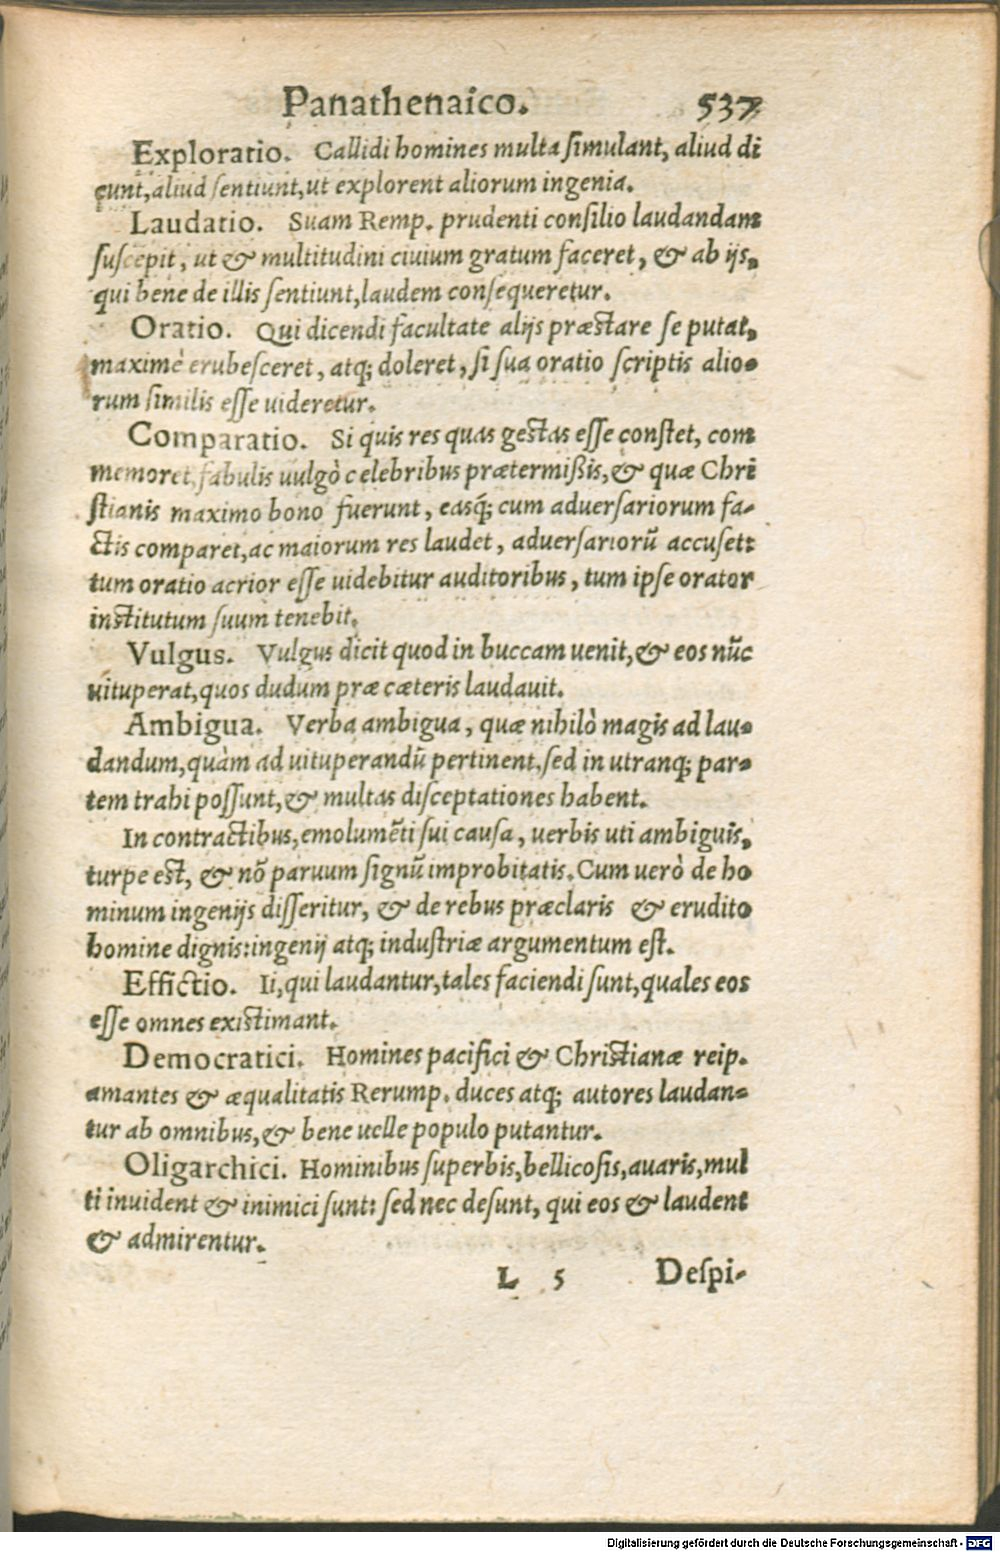 Panathenaico. 537
Exploratio. Callidi homines multa ſimulant, aliud di
cunt, aliud ſentiunt, ut explorent aliorum ingenia.
Laudatio. Suam Remp. prudenti conſilio laudandam
ſuſcepit, ut & multitudini ciuium gratum faceret, & ab ijs,
qui bene de illis ſentiunt, laudem conſequeretur.
Oratio. Qui dicendi facultate alijs præſtare ſe putat,
maximè erubeſceret, atq; doleret, ſi ſua oratio ſcriptis alio-
rum ſimilis eſſe uideretur.
Comparatio. Si quis res quas geſtas eſſe conſtet, com
memoret, fabulis uulgò celebribus prætermiſsis, & quæ Chri
ſtianis maximo bono fuerunt, easq́; cum aduerſariorum fa-
ctis comparet, ac maiorum res laudet, aduerſariorũ accuſet:
tum oratio acrior eſſe uidebitur auditoribus, tum ipſe orator
inſtitutum ſuum tenebit.
Vulgus. Vulgus dicit quod in buccam uenit, & eos nũc
uituperat, quos dudum præ cæteris laudauit.
Ambigua. Verba ambigua, quæ nihilò magis ad lau-
dandum, quàm ad uituperandũ pertinent, ſed in utranq; par-
tem trahi poſſunt, & multas diſceptationes habent.
In contractibus, emolumẽti ſui cauſa, uerbis uti ambiguis,
turpe eſt, & nõ paruum ſignũ improbitatis. Cum uerò de ho
minum ingenijs diſſeritur, & de rebus præclaris & erudito
homine dignis: ingenij atq; induſtriæ argumentum eſt.
Effictio. Ii, qui laudantur, tales faciendi ſunt, quales eos
eſſe omnes exiſtimant.
Democratici. Homines pacifici & Chriſtianæ reip.
amantes & æqualitatis Rerump. duces atq; autores laudan-
tur ab omnibus, & bene uelle populo putantur.
Oligarchici. Hominibus ſuperbis, bellicoſis, auaris, mul
ti inuident & inimici ſunt: ſed nec deſunt, qui eos & laudent
& admirentur.
L 5 Deſpi-
Digitalisierung gefördert durch die Deutsche Forschungsgemeinschaft - DFG